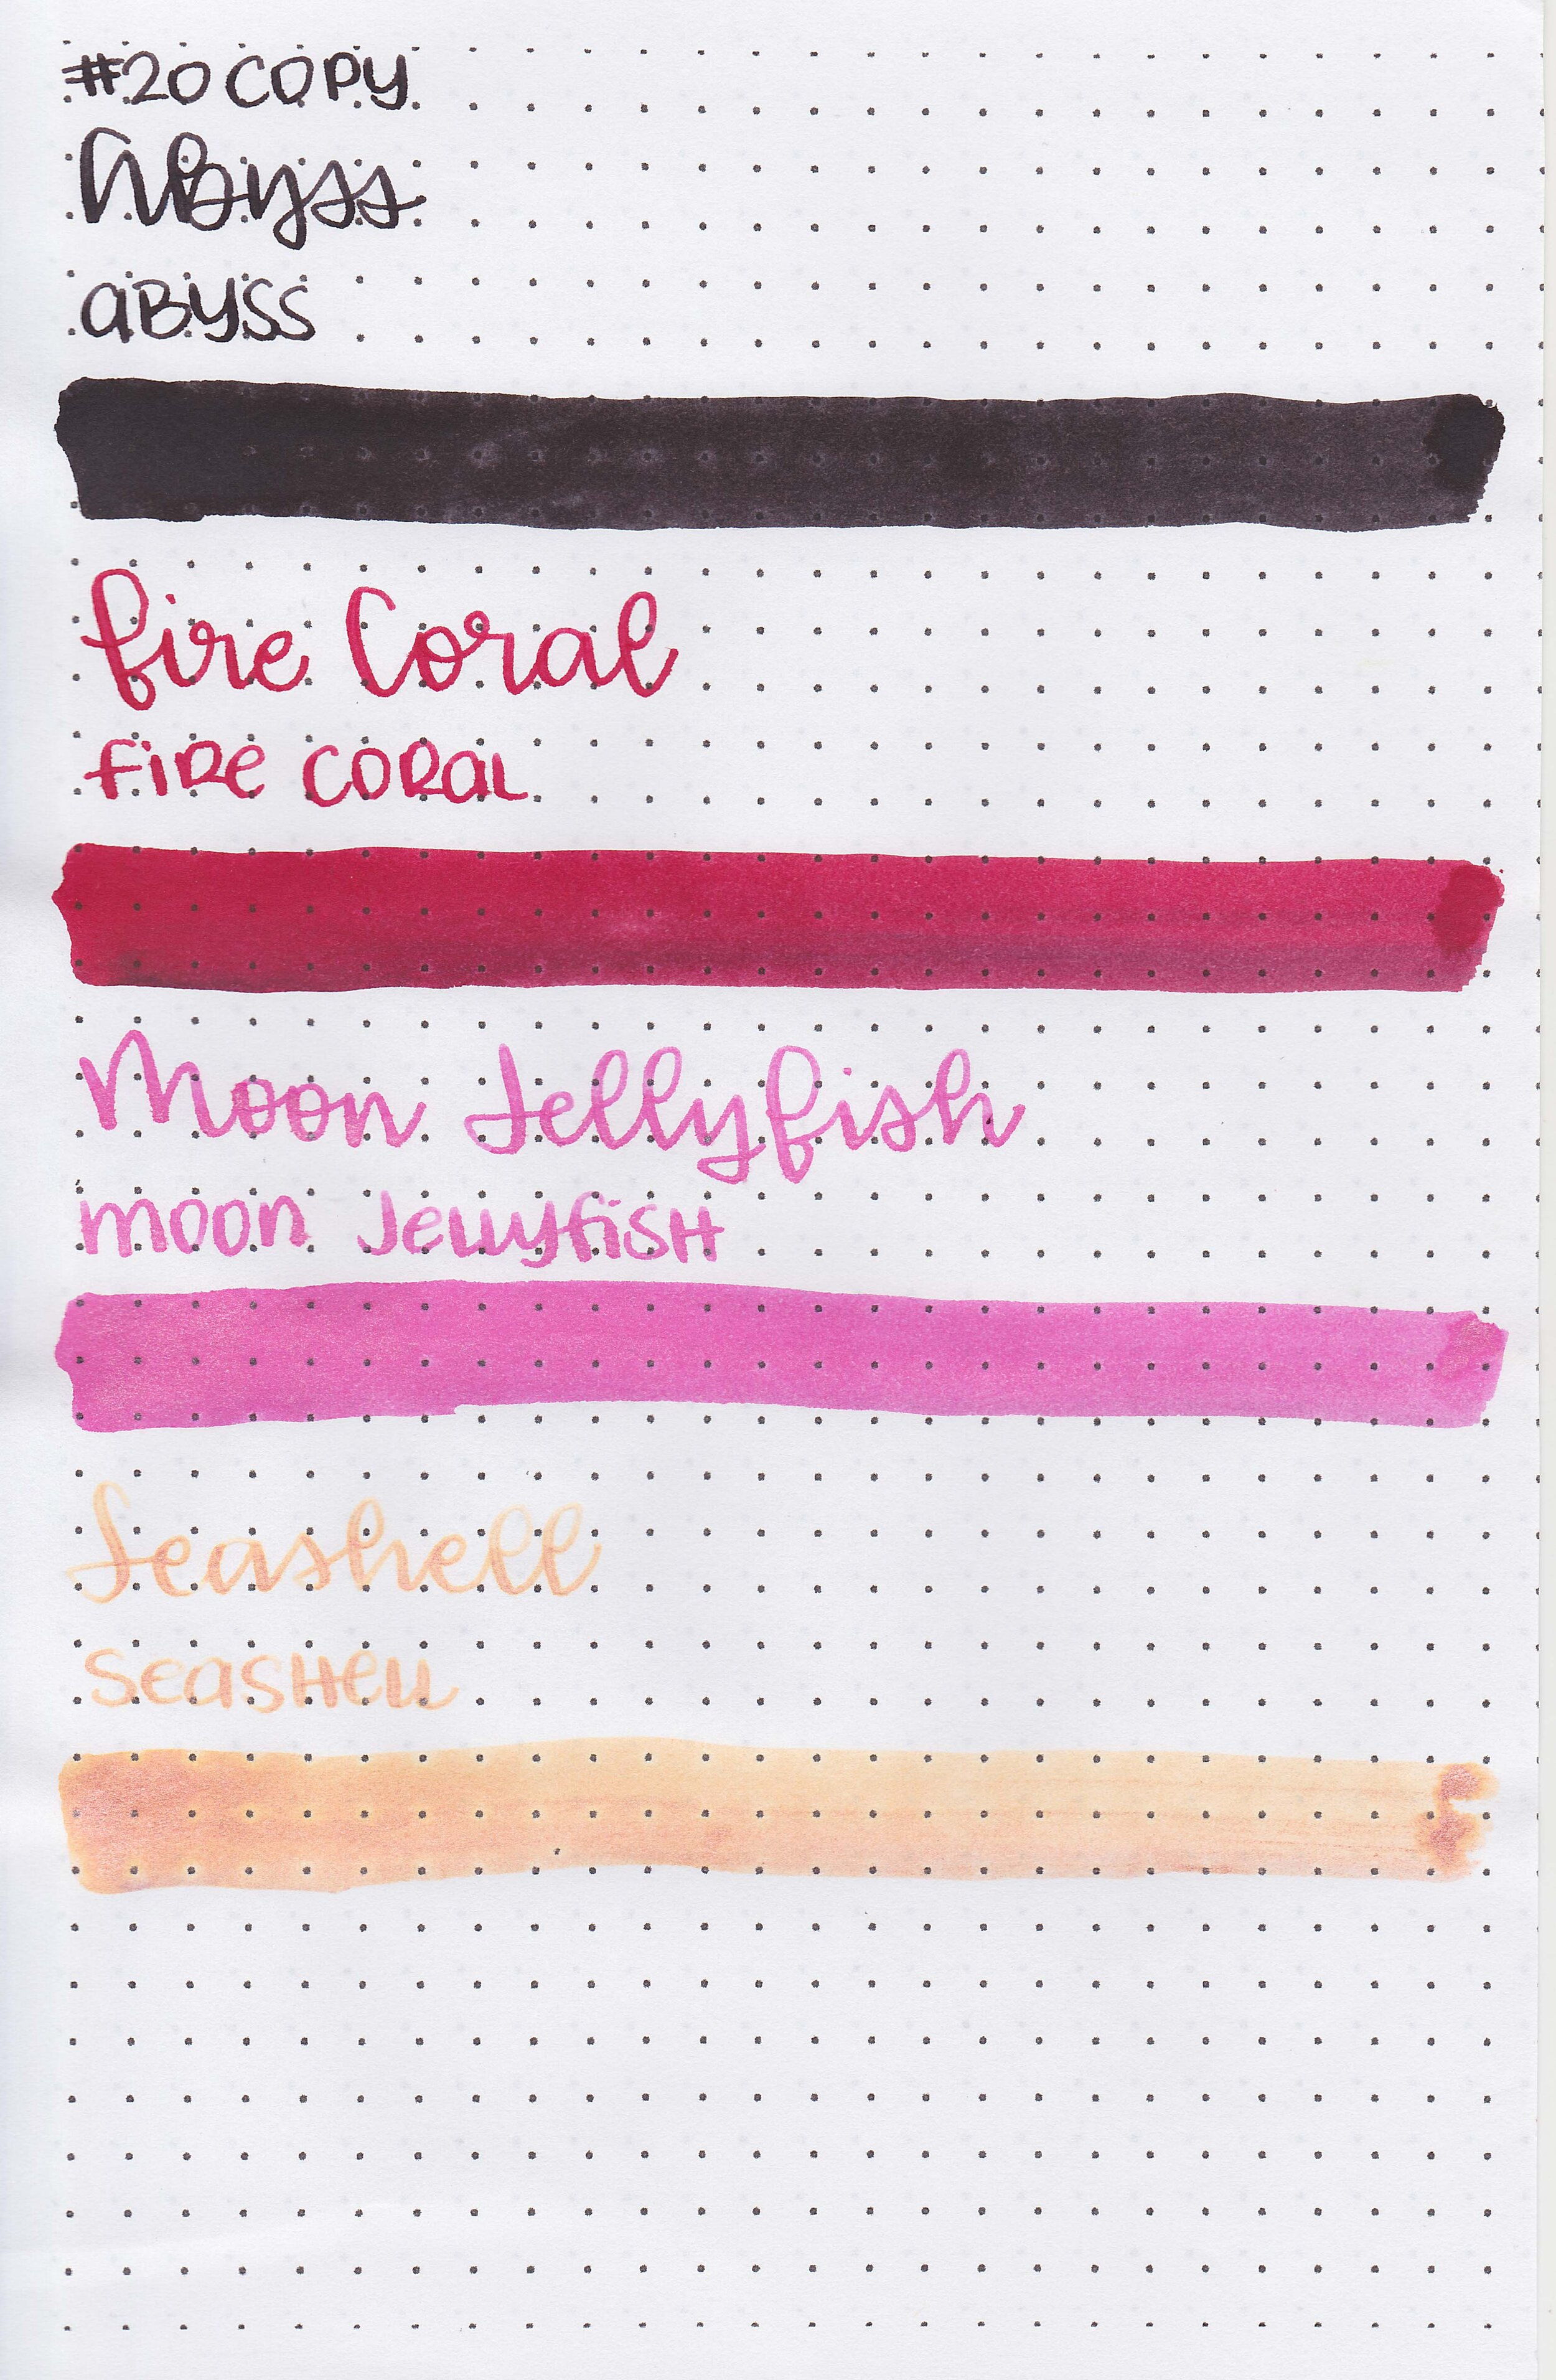 #20 COPY
Abyss
aBYSS
fire Coral
FiRe CORaL
Moon Jellyfish
moon JeLLyfisH
Seashell
SeaSHeLL